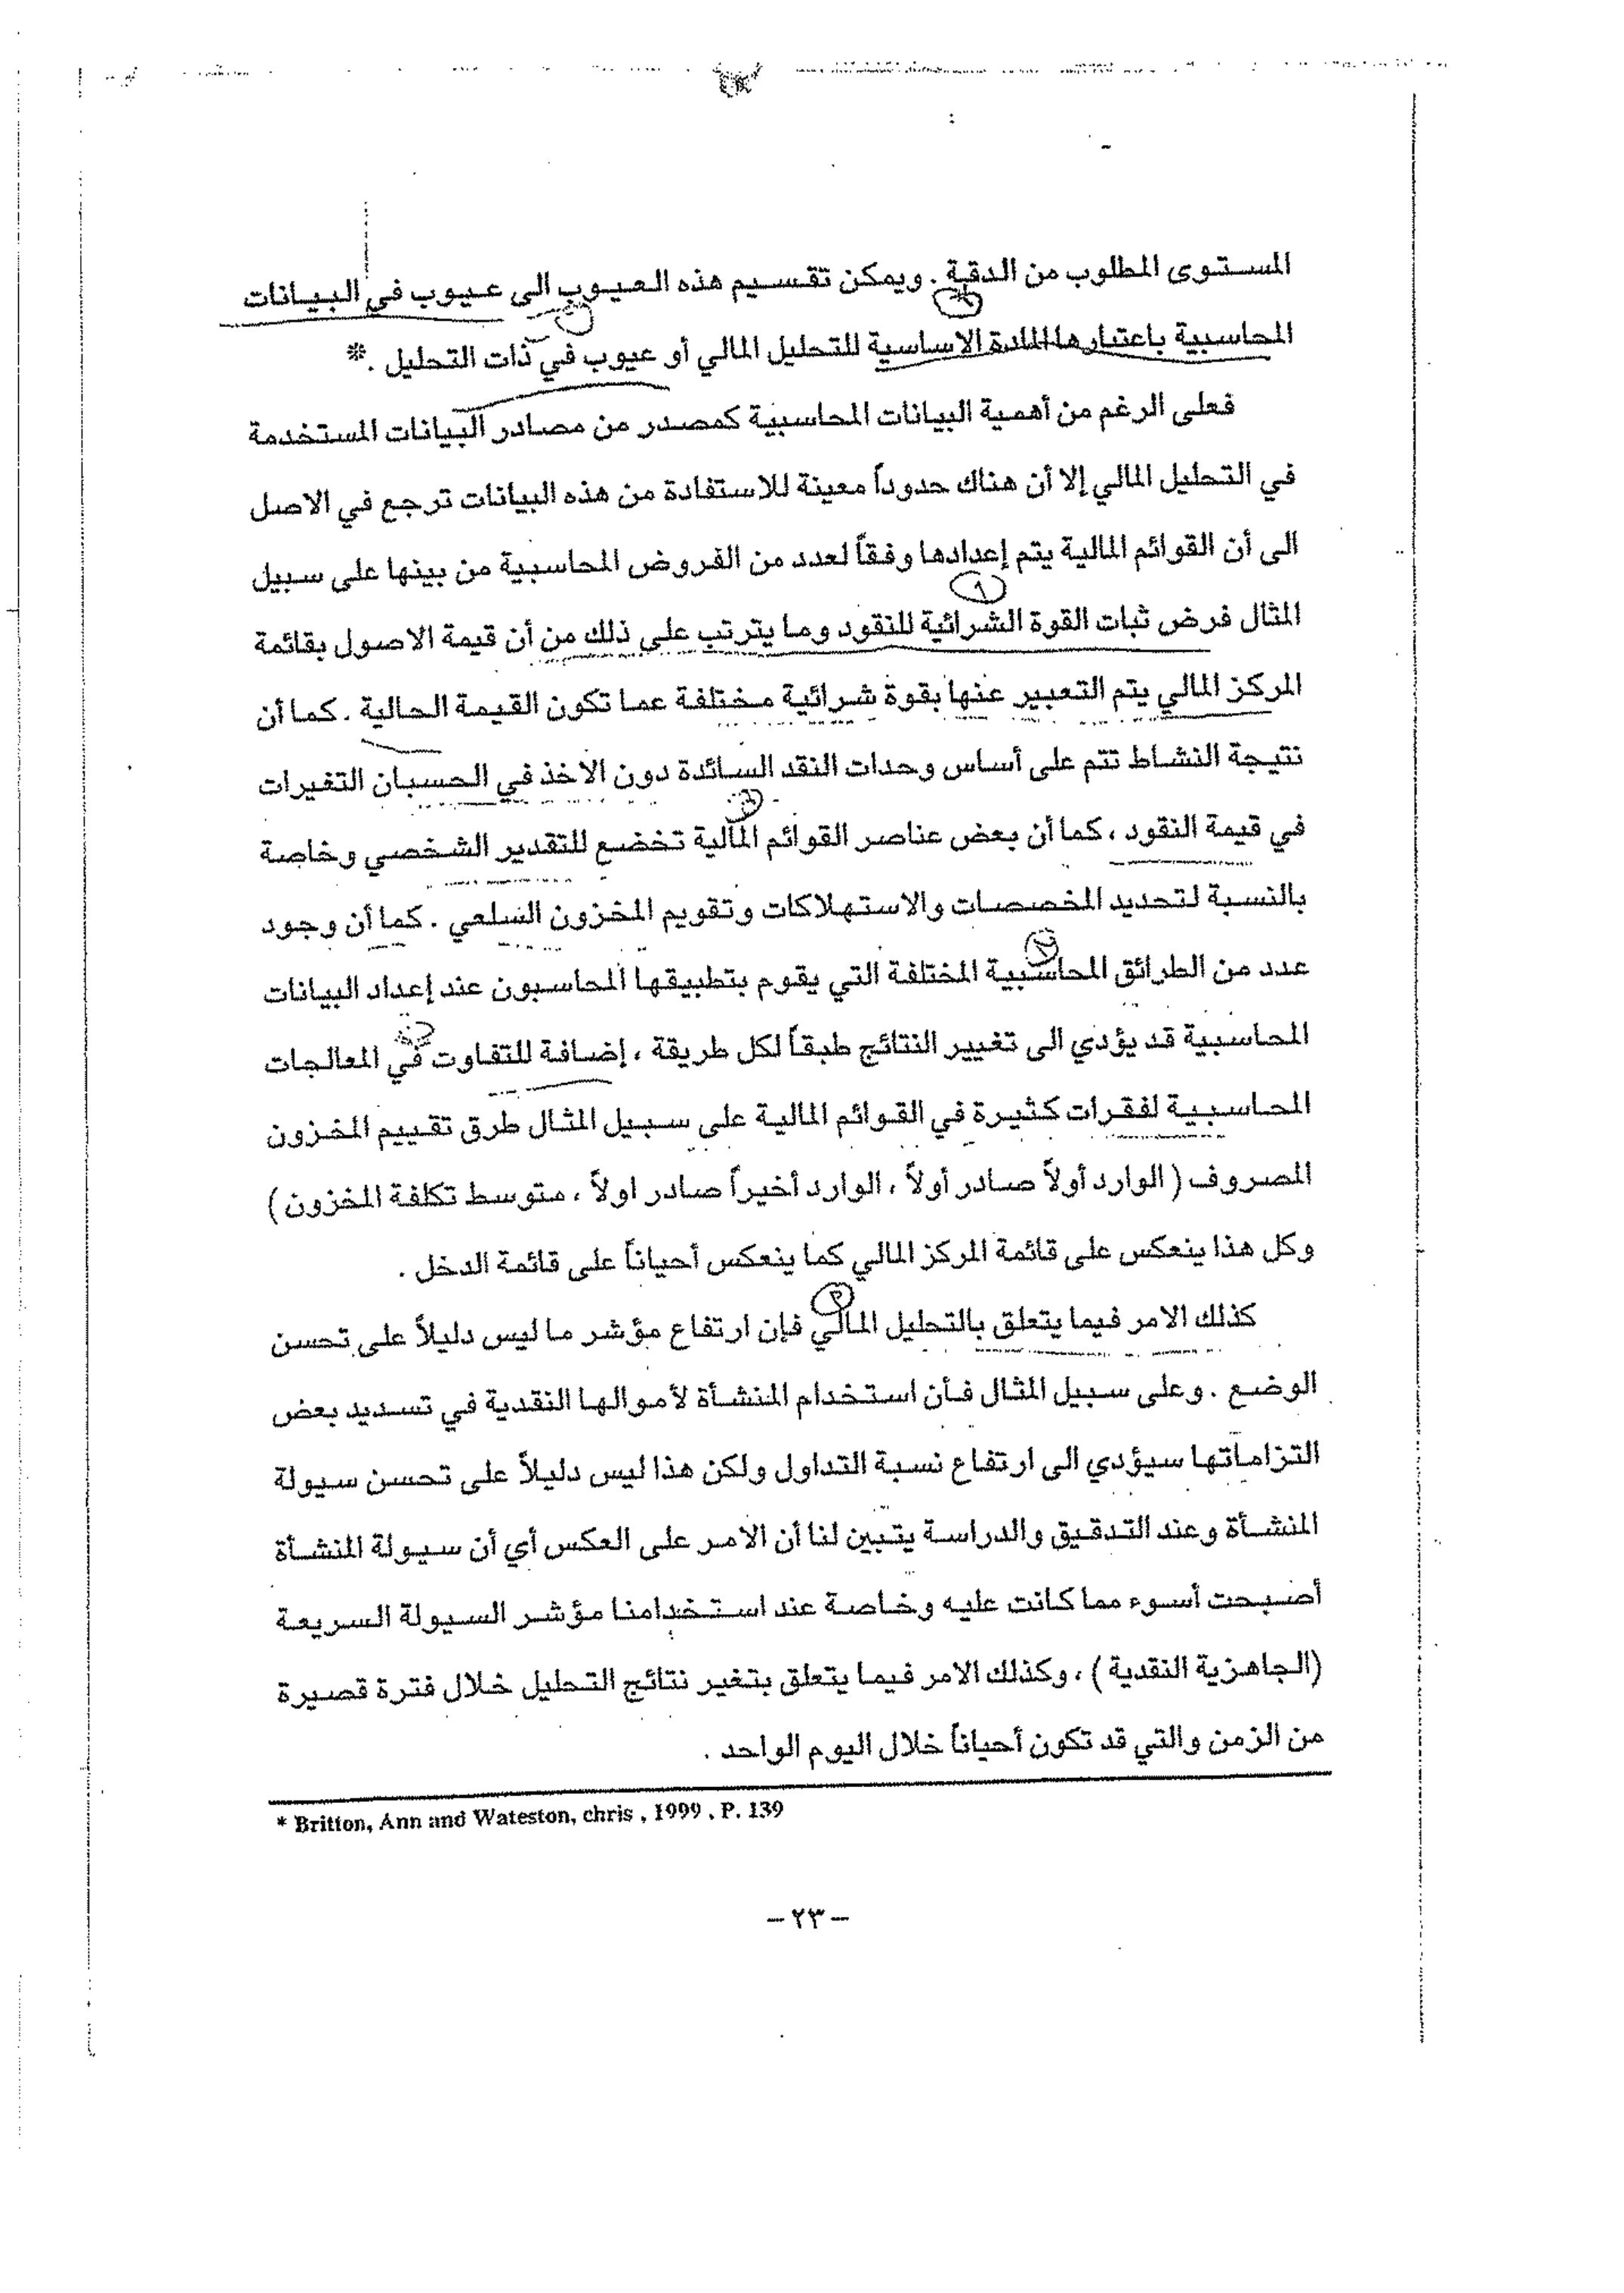 المستوى المطلوب من الدقة . ويمكن تقسيم هذه العيوب الى عيوب في البيانات
المحاسبية باعتبارها المادة الاساسية للتحليل المالي أو عيوب في ذات التحليل . *
فعلى الرغم من أهمية البيانات المحاسبية كمصدر من مصادر البيانات المستخدمة
في التحليل المالي إلا أن هناك حدوداً معينة للاستفادة من هذه البيانات ترجع في الاصل
الى أن القوائم المالية يتم إعدادها وفقاً لعدد من الفروض المحاسبية من بينها على سبيل
المثال فرض ثبات القوة الشرائية للنقود وما يترتب على ذلك من أن قيمة الاصول بقائمة
المركز المالي يتم التعبير عنها بقوة شرائية مختلفة عما تكون القيمة الحالية . كما أن
نتيجة النشاط تتم على أساس وحدات النقد السائدة دون الاخذ في الحسبان التغيرات
في قيمة النقود ، كما أن بعض عناصر القوائم المالية تخضع للتقدير الشخصي وخاصة
بالنسبة لتحديد المخصصات والاستهلاكات وتقويم المخزون السلعي . كما أن وجود
عدد من الطرائق المحاسبية المختلفة التي يقوم بتطبيقها المحاسبون عند إعداد البيانات
المحاسبية قد يؤدي الى تغيير النتائج طبقاً لكل طريقة ، إضافة للتفاوت في المعالجات
المحاسبية لفقرات كثيرة في القوائم المالية على سبيل المثال طرق تقييم المخزون
المصروف ( الوارد أولاً صادر أولاً ، الوارد أخيراً صادر اولاً ، متوسط تكلفة المخزون )
وكل هذا ينعكس على قائمة المركز المالي كما ينعكس أحياناً على قائمة الدخل .
كذلك الامر فيما يتعلق بالتحليل المالي فإن ارتفاع مؤشر ما ليس دليلاً على تحسن
الوضع . وعلى سبيل المثال فأن استخدام المنشأة لأموالها النقدية في تسديد بعض
التزاماتها سيؤدي الى ارتفاع نسبة التداول ولكن هذا ليس دليلاً على تحسن سيولة
المنشأة وعند التدقيق والدراسة يتبين لنا أن الامر على العكس أي أن سيولة المنشأة
أصبحت أسوء مما كانت عليه وخاصة عند استخدامنا مؤشر السيولة السريعة
(الجاهزية النقدية) ، وكذلك الامر فيما يتعلق بتغير نتائج التحليل خلال فترة قصيرة
من الزمن والتي قد تكون أحياناً خلال اليوم الواحد .
* Britton, Ann and Wateston, chris , 1999 , P. 139
– ٢٣ –